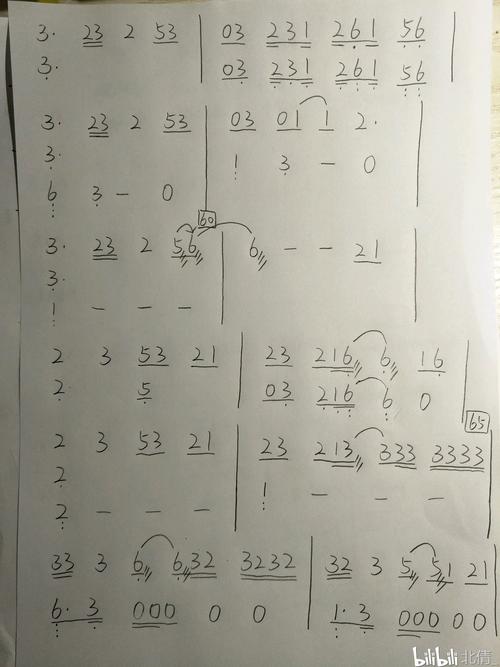 3· 23 2 53 | 03 231 261 56 |
3· 03 231 261 56
3· 23 2 53 | 03 01 1 2· |
3· 1 3 – 0
6 3 – 0
60
3· 23 2 56 | 6 – – 21 |
3·
1 – – –
2 3 53 21 | 23 216 6 16 |
2· 5 03 216 6 0
65
2 3 53 21 | 23 213 333 3333 |
2· 1 – – –
2 – – –
33 3 6 632 3232 | 32 3 5 51 21 |
6·3 000 0 0 1·3 000 0 0
bilibili 北倩